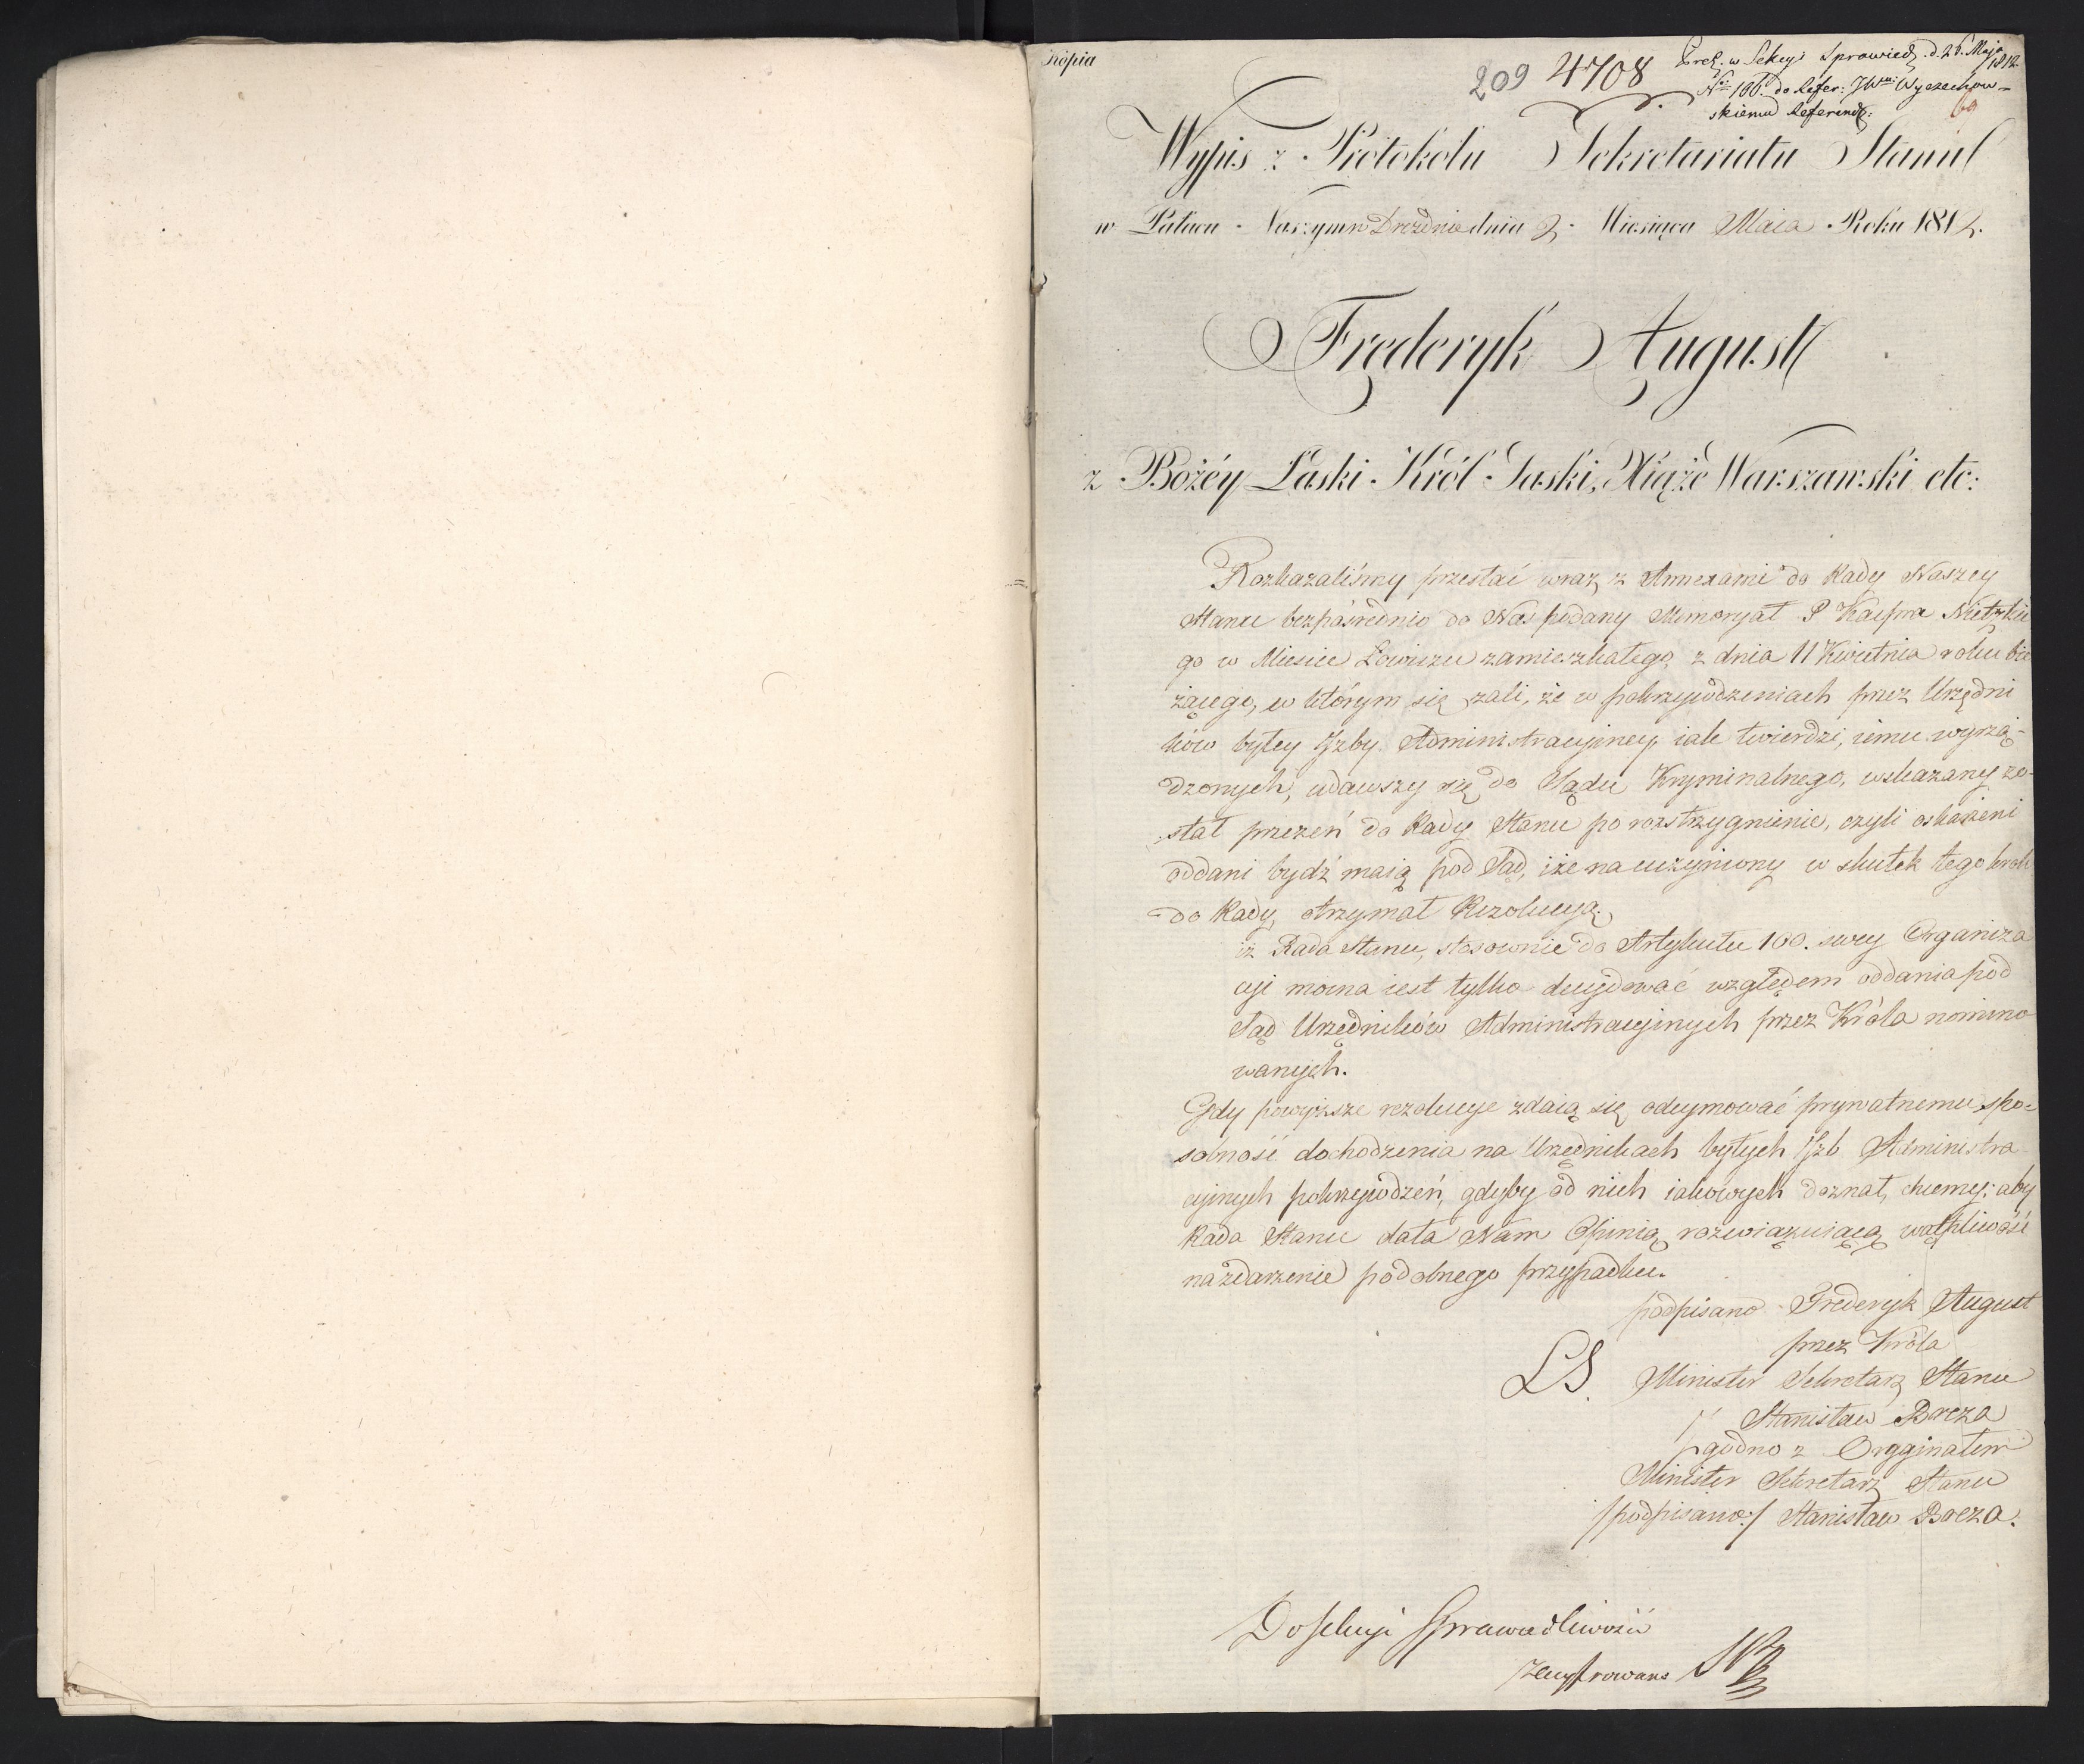 Kopia
209 4708 Prez. w Sekcyi Sprawied. d. 26. Maja 1812.
Nr 166. do Refer: JW Wyczechow-
skiemu Referend:
69
Wypis z Protokołu Sekretariatu Stanu
w Pałacu Naszym w Dreźnie dnia 2. Miesiąca Maia Roku 1812.
Fryderyk August
z Bożéy Łaski Król Saski, Xiąże Warszawski etc:
Rozkazaliśmy przesłać wraz z Annexami do Rady Naszey
Stanu bezpośrednio do Nas podany Memoryał P Kacpra
go w Mieście Łowiczu zamieszkałego z dnia 11 Kwietnia roku bie
żącego, w którym się żali, że w pokrzywdzeniach przez Urzędni
ków byłey Izby Administracyiney, iak twierdzi, iemu wyrzą-
dzonych, udawszy się do Sądu Kryminalnego, wskazany zo-
stał przezeń do Rady Stanu po rozstrzygnienie, czyli oskarżeni
oddani bydź maią pod Sąd, iże na uczyniony w skutek tego krok
do Rady, otrzymał Rezolucyą.
iż Rada Stanu, stosownie do Artykułu 100. swey Organiza
cyi mocna iest tylko decydować względem oddania pod
Sąd Urzędników Administracyinych przez Króla nomino
wanych.
Gdy powyższe rezolucye zdaią się odeymować prywatnemu spo-
sobność dochodzenia na Urzędnikach byłych Izb Administra
cyinych pokrzywdzeń, gdyby od nich iakowych doznał, chcemy; aby
Rada Stanu dała Nam Opinią rozwiązuiącą wątpliwość
na zdarzenie podobnego przypadku.
podpisano Frederyk August
przez Króla
LS Minister Sekretarz Stanu
Stanisław Breza
zgodno z Oryginałem
Minister Sekretarz Stanu
/podpisano:/ Stanisław Breza.
Do Sekcyi Sprawiedliwości